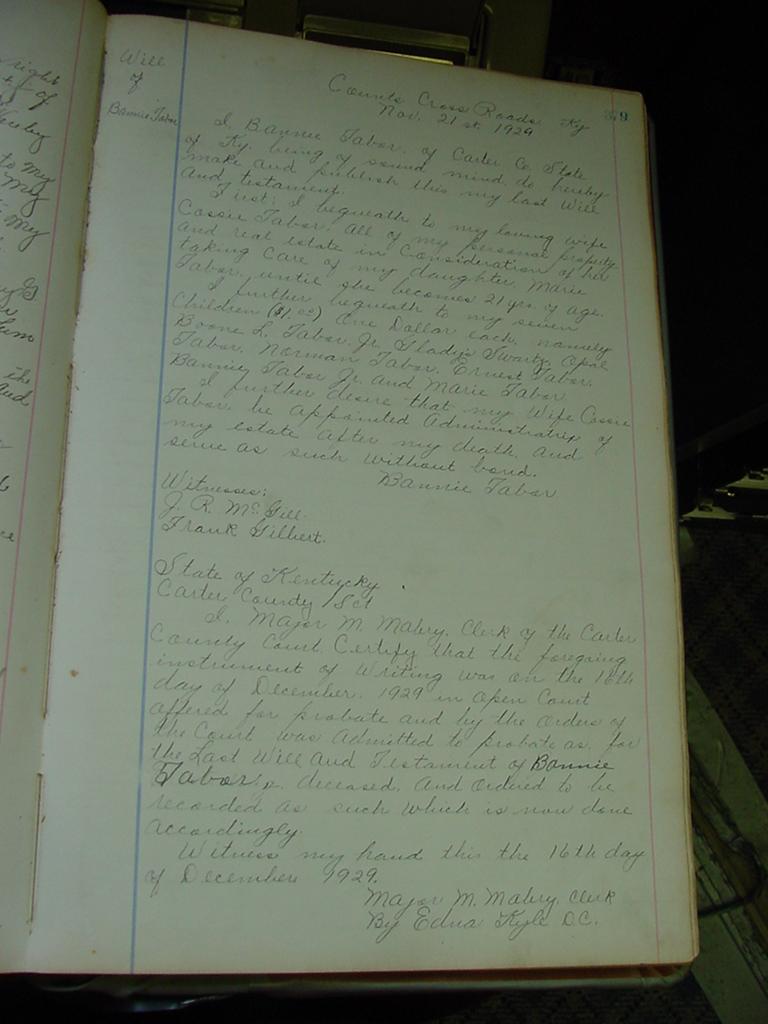 Will
of
Bannie Tabor
39
Counts Cross Roads Ky
Nov. 21st, 1929
I, Bannie Tabor, of Carter Co, State
of Ky. being of sound mind, do hereby
make and publish this my last Will
and testament.
First; I bequeath to my loving wife
Cossie Tabor, all of my personal property
and real estate in Consideration of her
taking Care of my daughter, Marie
Tabor, until she becomes 21 yrs. of age.
I further bequeath to my seven
Children ($1.00) One Dollar each, namely
Boone L. Tabor, Jr. Gladys Swartz, Opal
Tabor, Norman Tabor, Ernest Tabor,
Bannie Tabor Jr. and Marie Tabor.
I further desire that my Wife Cossie
Tabor be appointed Administratrix of
my estate after my death, and
serve as such without bond.
Bannie Tabor
Witnesses:
J. R. McGill
Frank Gilbert.
State of Kentucky
Carter County Sct
I, Major M. Mabry, Clerk of the Carter
County Court, Certify that the foregoing
instrument of Writing was on the 16th
day of December, 1929 in Open Court
offered for probate and by the orders of
the Court was admitted to probate as, for
the Last Will and Testament of Bannie
Tabor, deceased, and ordered to be
recorded as such which is now done
accordingly.
Witness my hand this the 16th day
of December 1929.
Major M. Mabry, Clerk
By Edna Kyle D.C.
right
of
to my
my
my
the
and